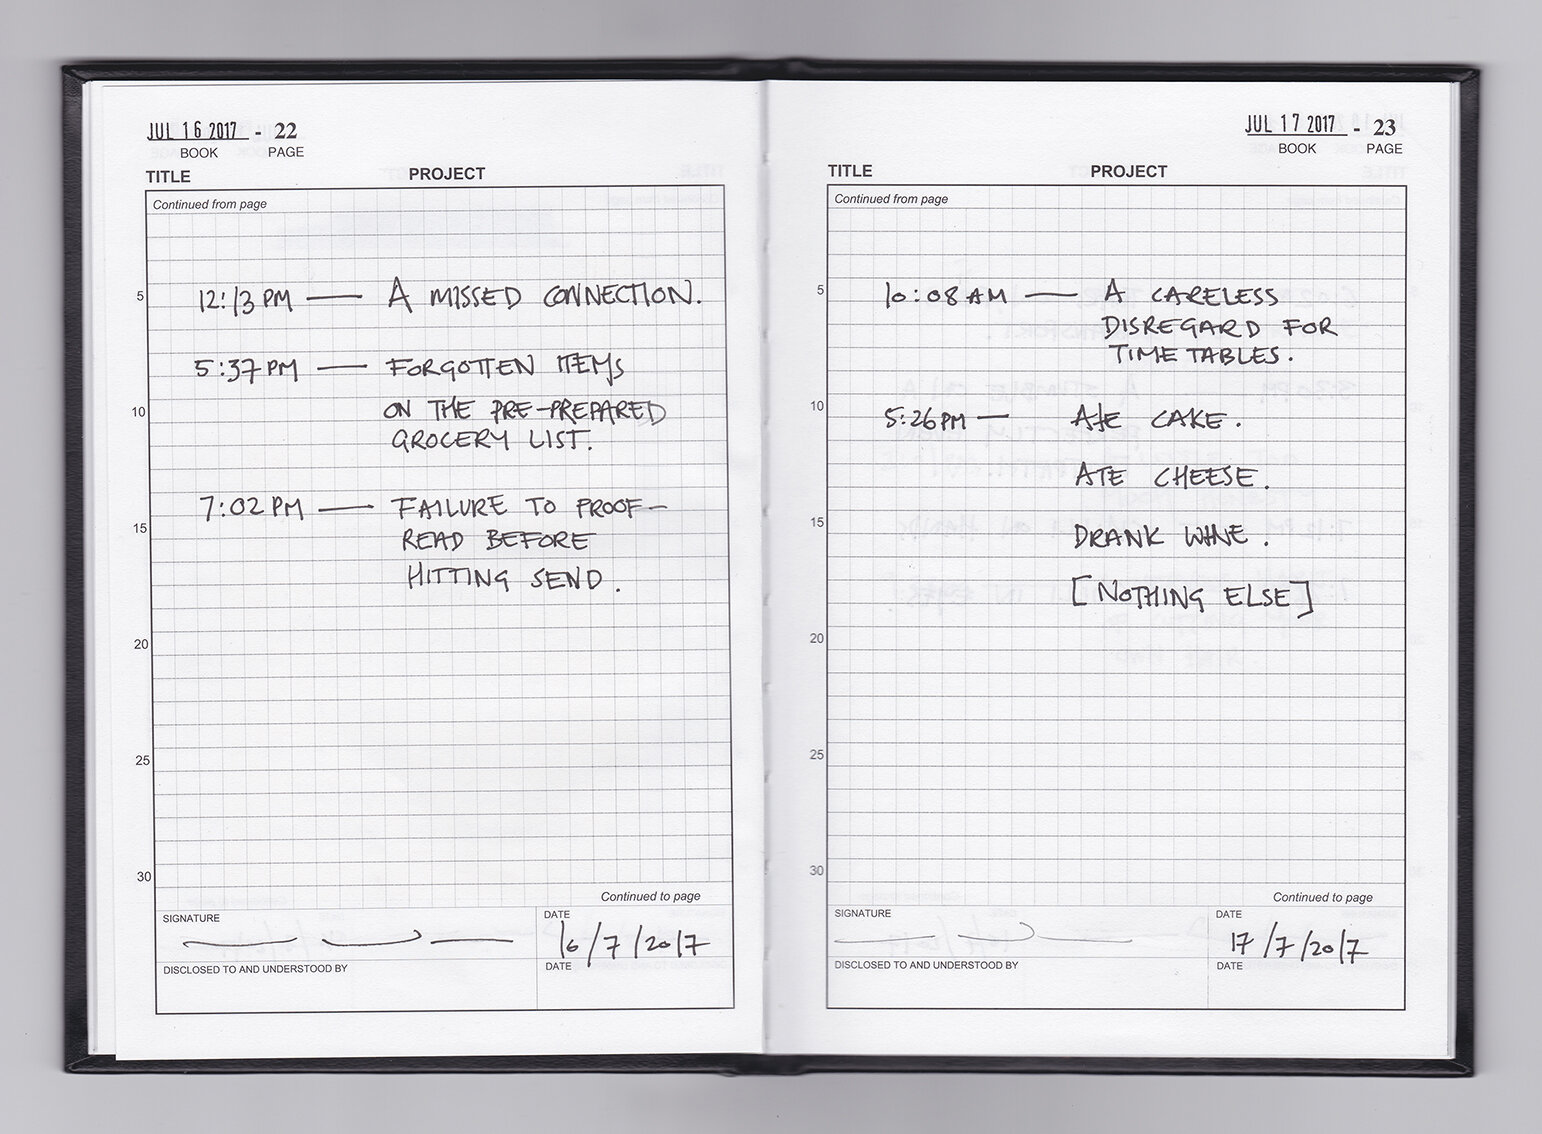 JUL 16 2017 - 22
BOOK PAGE
TITLE PROJECT
Continued from page
5
12:13 PM — A MISSED CONNECTION.
5:37 PM — FORGOTTEN ITEMS
10
ON THE PRE-PREPARED
GROCERY LIST.
7:02 PM — FAILURE TO PROOF-
15
READ BEFORE
HITTING SEND.
20
25
30
Continued to page
SIGNATURE
DATE
16/7/2017
DISCLOSED TO AND UNDERSTOOD BY
DATE
JUL 17 2017 - 23
BOOK PAGE
TITLE PROJECT
Continued from page
5
10:08 AM — A CARELESS
DISREGARD FOR
TIME TABLES.
10
5:26 PM — ATE CAKE.
ATE CHEESE.
15
DRANK WINE.
[NOTHING ELSE]
20
25
30
Continued to page
SIGNATURE
DATE
17/7/2017
DISCLOSED TO AND UNDERSTOOD BY
DATE